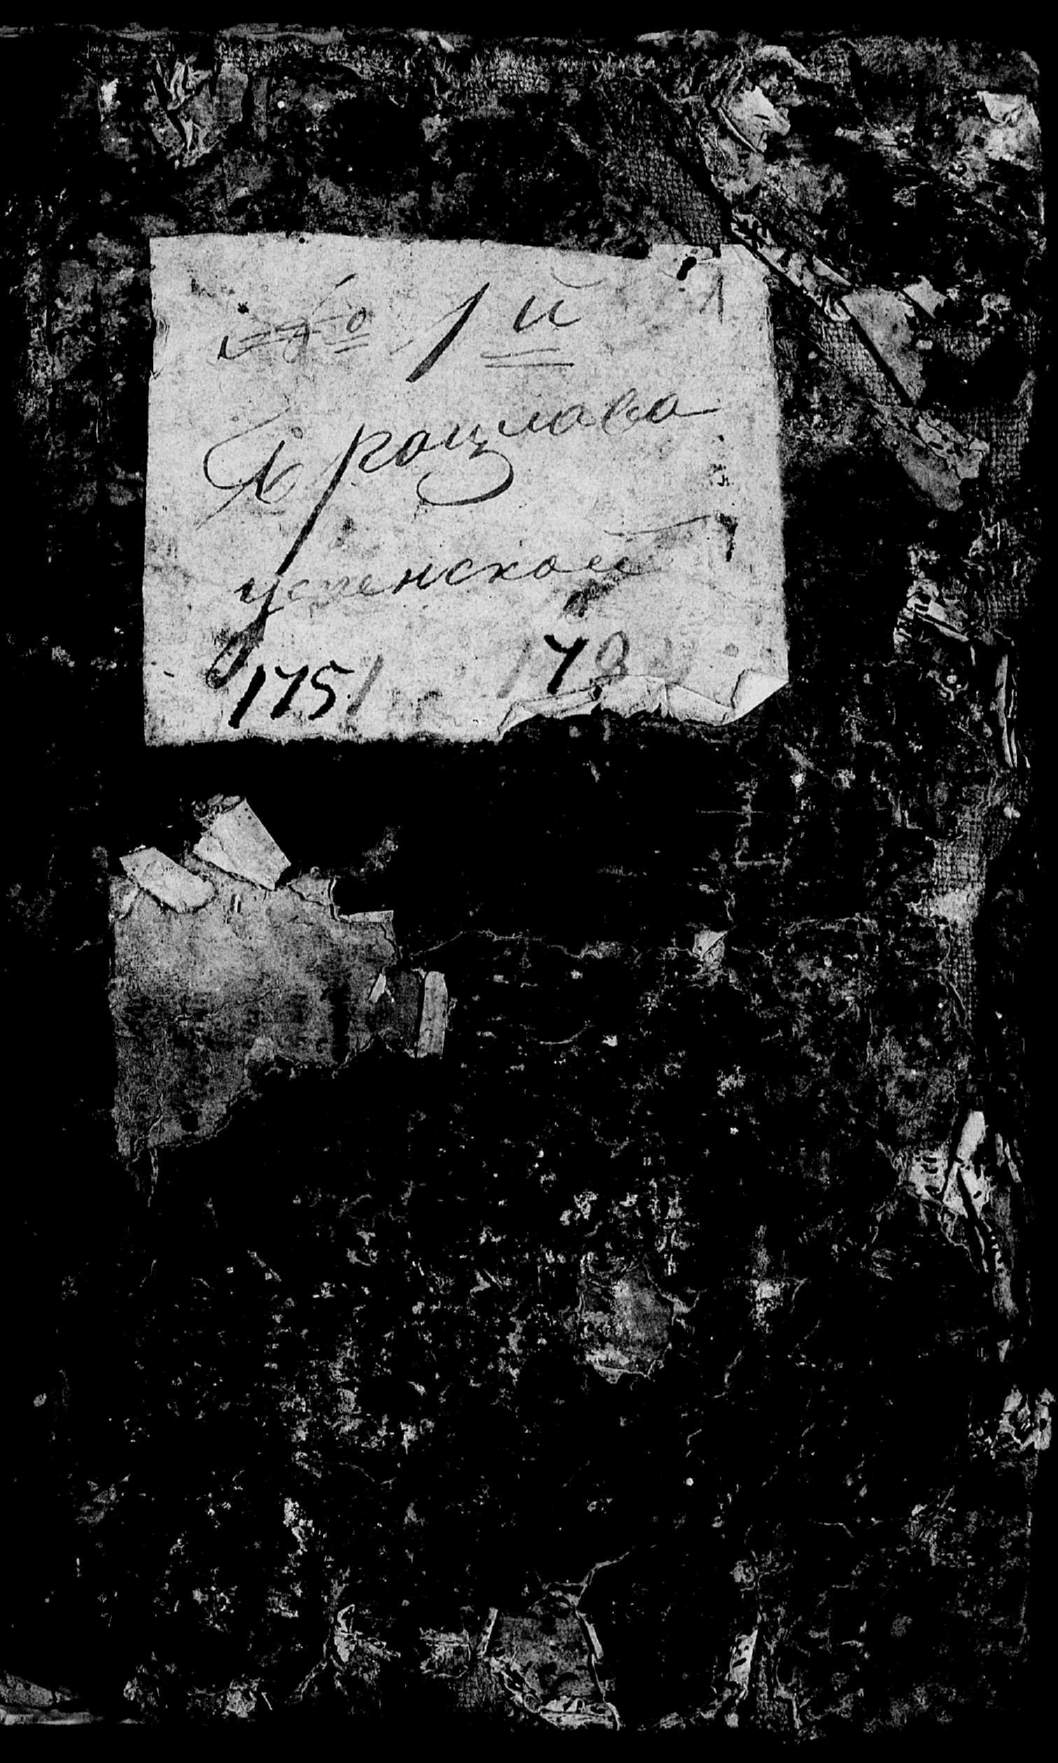 № 1й
Брацлава
успенской
1751 178